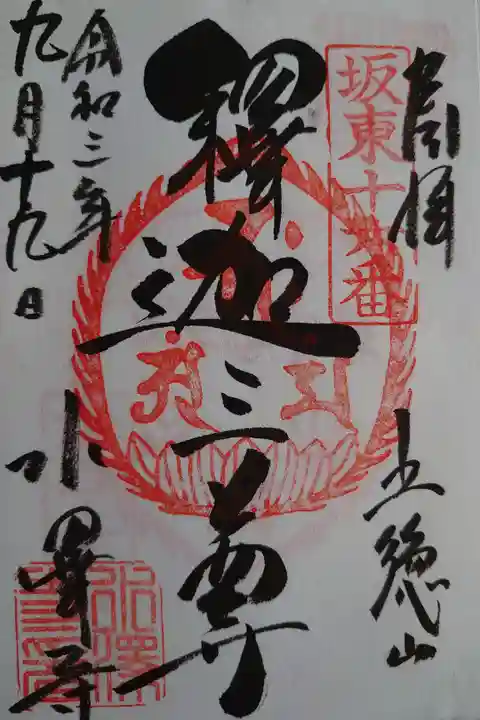 坂東十六番
五徳山
釋迦三尊
令和三年
九月十九日
水澤寺